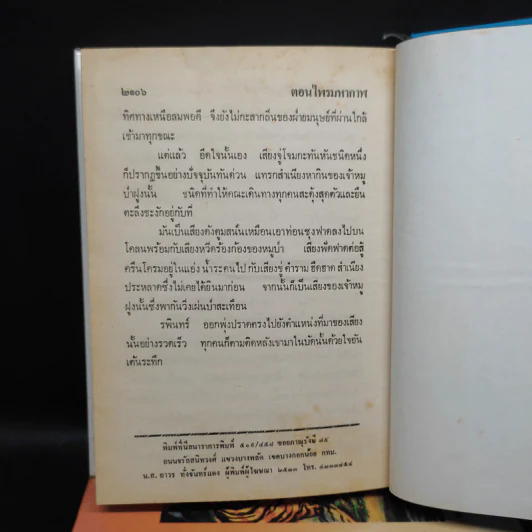 ๒๑๐๖ ตอนไพรมหากาฬ
ทิศทางเหนือลมพอดี จึงยังไม่กะสากลิ่นของฝ่ายมนุษย์ที่ผ่านใกล้
เข้ามาทุกขณะ
แต่แล้ว อึดใจนั้นเอง เสียงจู่โจมกะทันหันชนิดหนึ่ง
ก็ปรากฏขึ้นอย่างปัจจุบันทันด่วน แทรกสำเนียงหากินของเจ้าหมู
ป่าฝูงนั้น ชนิดที่ทำให้คณะเดินทางทุกคนสะดุ้งสุดตัวและยืน
ตะลึงชะงักอยู่กับที่
มันเป็นเสียงดังตูมสนั่นเหมือนเอาท่อนซุงฟาดลงไปบน
โคลนพร้อมกับเสียงหวีดร้องก้องของหมูป่า เสียงฟัดฟาดต่อสู้
ครืนโครมอยู่ในแอ่ง น้ำระคนไป กับเสียงขู่ คำราม ฮึดฮาด สำเนียง
ประหลาดซึ่งไม่เคยได้ยินมาก่อน จากนั้นก็เป็นเสียงของเจ้าหมู
ฝูงนั้นซึ่งพากันวิ่งเผ่นป่าสะเทือน
รพินทร์ ออกพุ่งปราดตรงไปยังตำแหน่งที่มาของเสียง
นั้นอย่างรวดเร็ว ทุกคนก็ตามติดหลังเขามาในบัดนั้นด้วยใจอัน
เต้นระทึก
พิมพ์ที่นีลนาราการพิมพ์ ๕๐๙/๔๕๘ ซอยภาณุรังษี ๗๕
ถนนจรัลสนิทวงศ์ แขวงบางพลัด เขตบางกอกน้อย กทม.
น.ส. ถาวร ทั่งจันทร์แดง ผู้พิมพ์ผู้โฆษณา ๒๕๓๓ โทร.